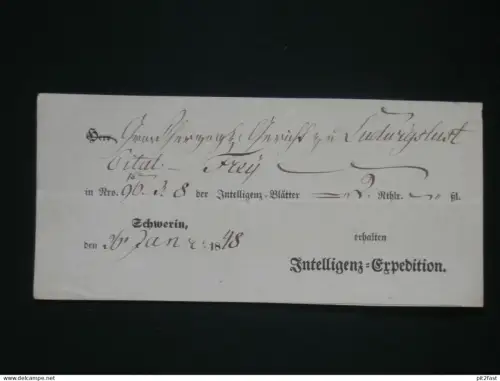 Herr Grossherzogl. Gericht zu Ludwigslust
Cital. Frey
in Nro. 96. J. 8 der Intelligenz-Blätter 2. Rthlr. ßl.
Schwerin,
den 26 Januar 1848
erhalten
Intelligenz-Expedition.